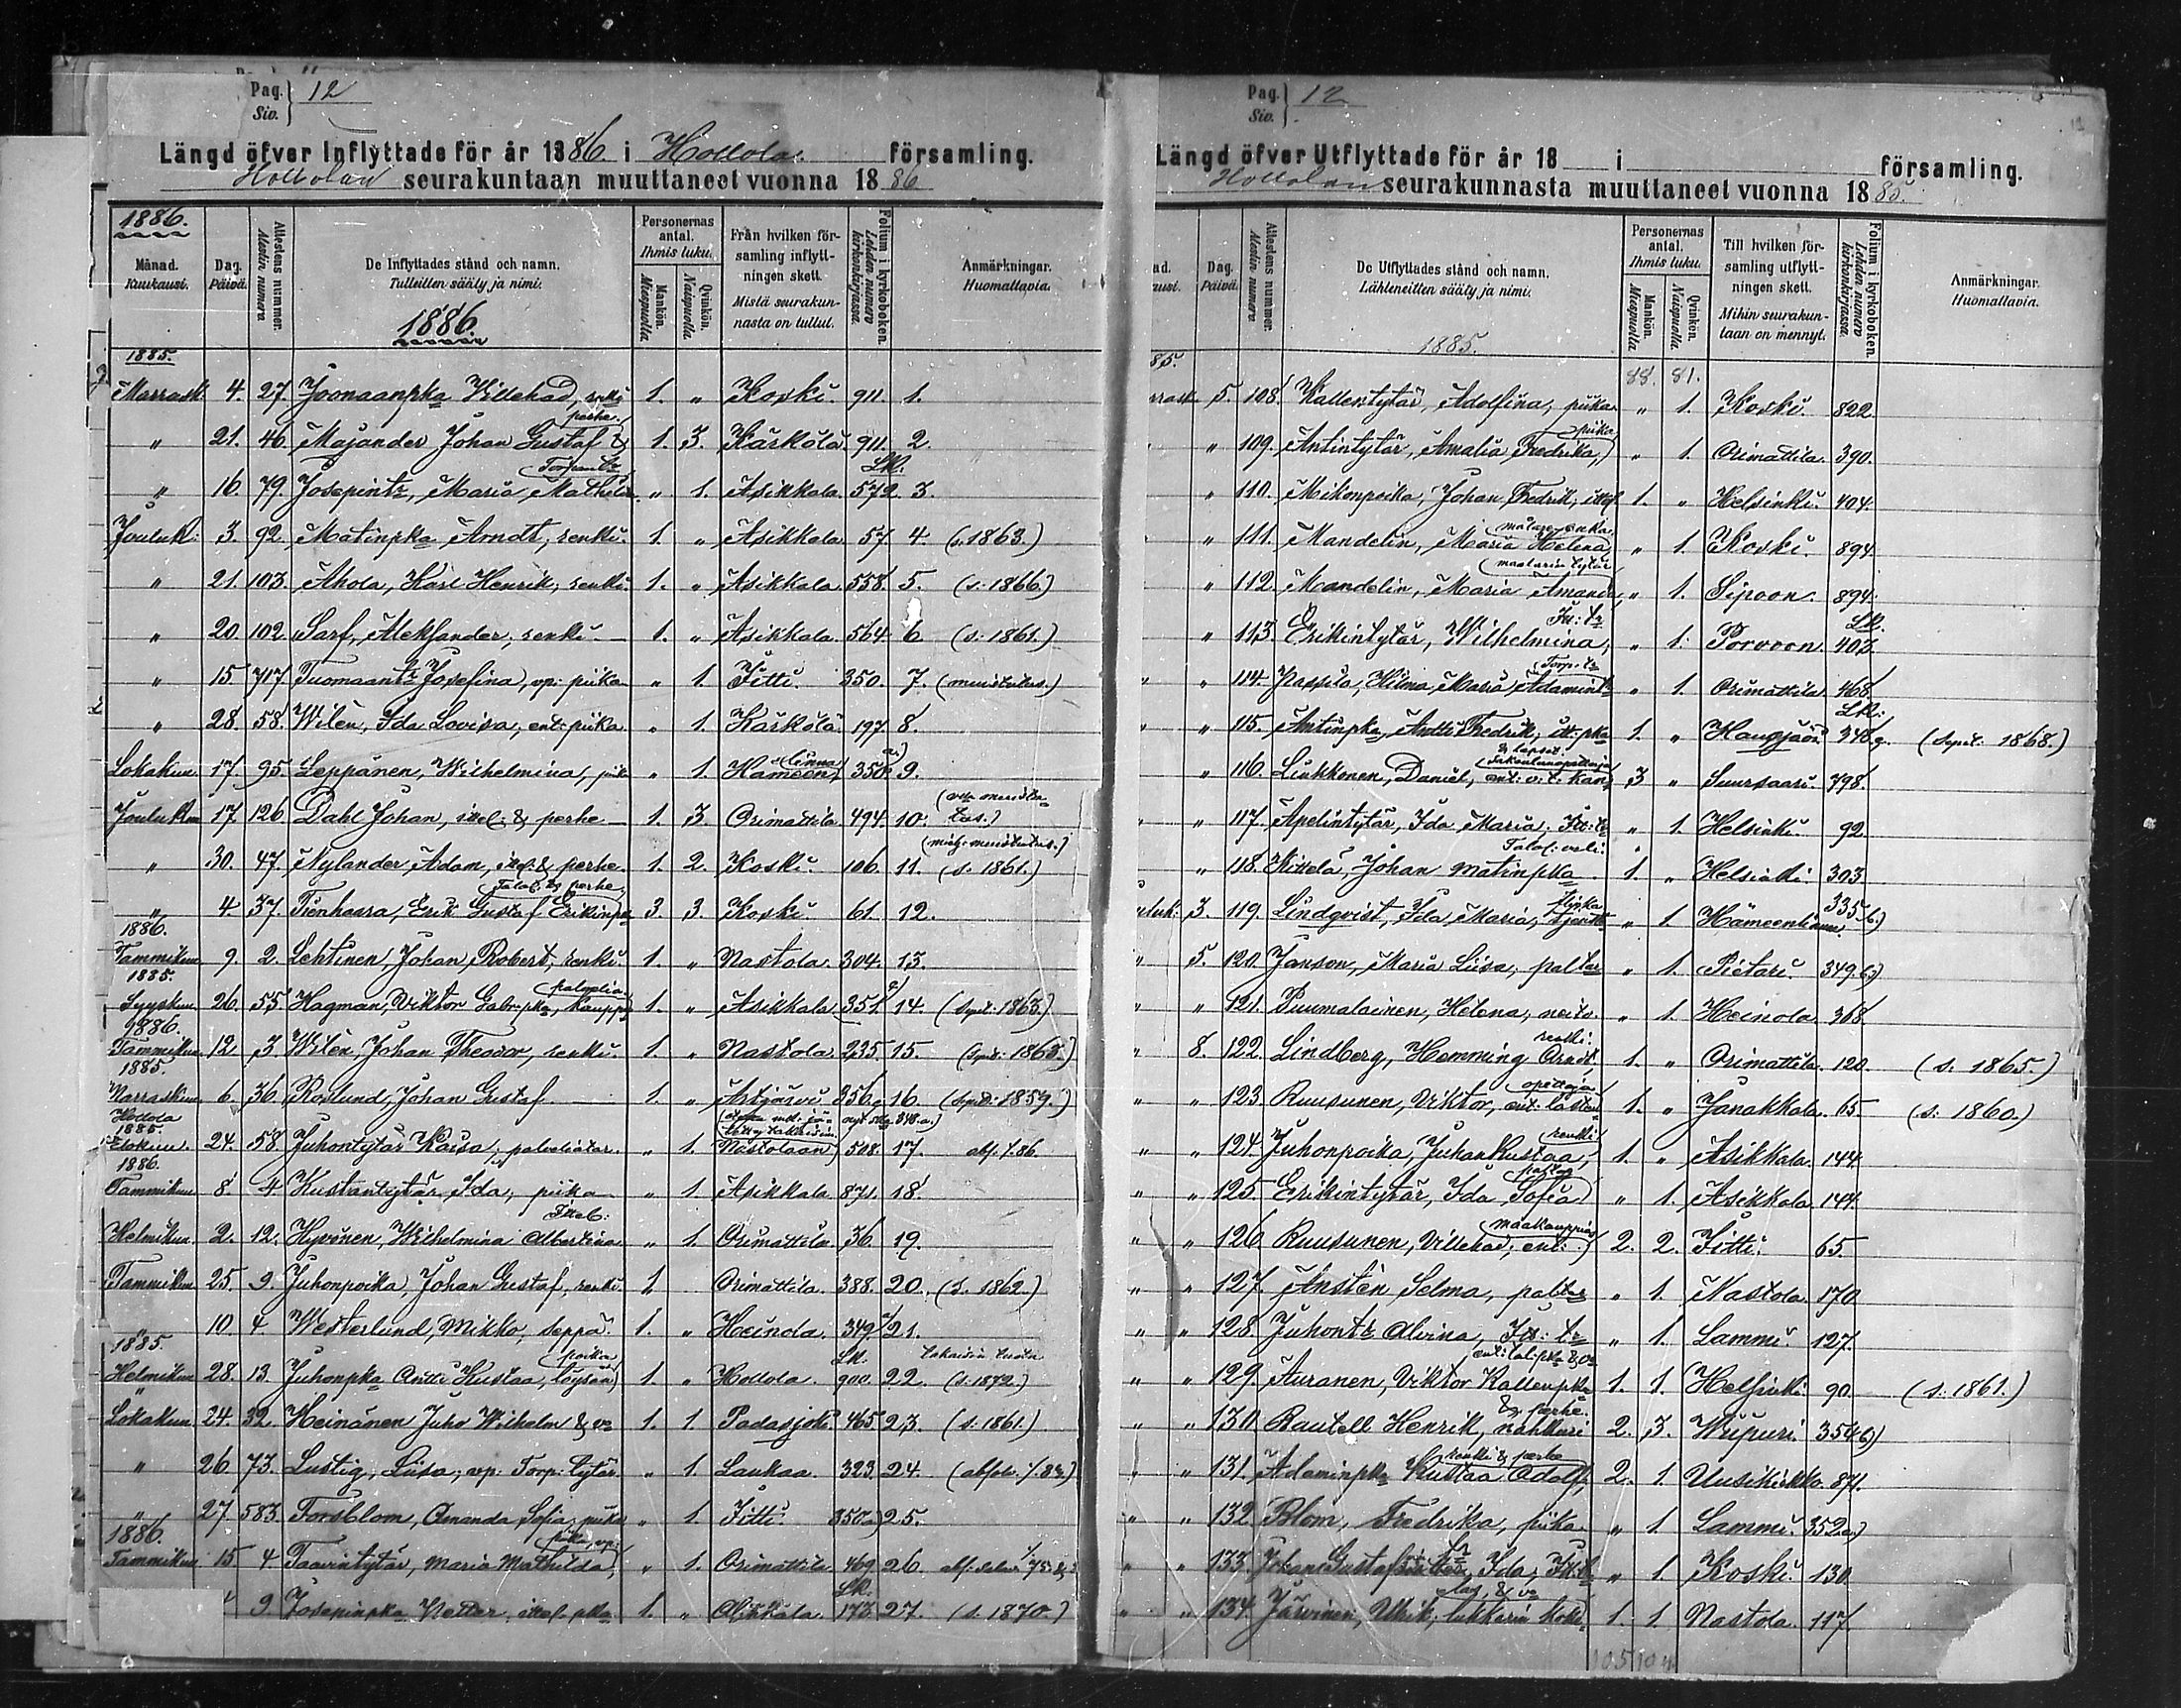 Pag. Siv. } 12
Längd öfver Inflyttade för år 1886 i Hollola församling.
Hollolan seurakuntaan muuttaneet vuonna 1886
1886.
Månad. Kuukausi.
Dag. Päivä.
Attestens nummer. Alestin numero
De Inflyttades stånd och namn. Tulleitten sääty ja nimi.
1886.
Personernas antal. Ihmis luku.
Mankön. Miespuolia
Qvinkön. Naispuolia.
Från hvilken församling inflyttningen skett. Mistä seurakunnasta on tullut.
Folium i kyrkoboken. Lehden numero kirkonkirjassa.
Anmärkningar. Huomattavia.
1885.
Marrask. 4. 27. Joonaanpka Villehad, renki 1. " Koski. 911. 1.
" 21. 46. Majander Johan Gustaf & perhe. 1. 3. Kärkölä. 911. 2.
" 16. 79. Josepintr, Maria Mathilda " 1. Asikkala. Lk. 572. 3.
Jouluk. 3. 92. Matinpka Arndt, renki. 1. " Asikkala. 57. 4. (s. 1863.)
" 21. 103. Ahola, Karl Henrik, renki. 1. " Asikkala. 558. 5. (s. 1866.)
" 20. 102. Sarf, Aleksander, renki 1. " Asikkala. 564. 6 (s. 1861.)
" 15 717. Tuomaantr Josefina, vp. piika " 1. Iitti. 350. 7. (muistutus.)
" 28. 58. Wilén, Ida Lovisa, ent. piika " 1. Kärkölä 197. 8.
Lokakuu 17. 95. Leppänen, Wilhelmina, piika " 1. Hämeenlinna 350 a.) 9.
Joulukuu 17. 126 Dahl Johan, itsel. & perhe 1. 3. Orimattila. 494. 10.
" 30. 47. Nylander Adam, itsel. & perhe. 1. 2. Koski. 106. 11. (s. 1861.)
" 4. 37. Tienhaara, Erik Gustaf Erikinpka Talol. & perhe 3. 3. Koski. 61. 12.
1886.
Tammikuu 9. 2. Lehtinen, Johan Robert, renki. 1. " Nastola. 304. 13.
1885.
Syyskuu 26. 55 Hagman, Viktor Gabr.pka, kaupp. palvelia 1. " Asikkala 351. 14. (Synt. 1863.)
1886.
Tammikuu 12 3 Wilén, Johan Theodor, renki. 1. " Nastola. 235. 15. (Synt. 1868.)
1885.
Marraskuu 6. 36. Roslund, Johan Gustaf 1. " Artjärvi 356. 16. (Synt. 1859.)
Hollola
1885.
Elokuu. 24. 58 Juhontytär Kaisa, palveliatar. " 1. Nastolaan 508. 17.
1886.
Tammikuu 8. 4 Kustantytär Ida, piika " 1 Asikkala 871. 18.
Helmikuu 2. 12. Hyvönen, Wilhelmina Albertina Itsel. " 1. Orimattila. 36. 19.
Tammikuu 25. 9. Juhonpoika, Johan Gustaf, renki. 1. Orimattila. 388. 20. (s. 1862.)
" 10. 4. Westerlund, Mikko, seppä. 1. " Heinola. 349. 21.
1885.
Helmikuu 28. 13. Juhonpka Antti Kustaa, löysän poika 1. " Hollola. Lk. 900. 22. (s. 1872.)
Lokakuu 24. 32. Heinänen Juho Wilhelm & vo 1. 1. Padasjoki. 465. 23. (s. 1861.)
" 26 73. Lustig, Liisa, vp. Torp. tytär. " 1. Laukaa. 323. 24.
" 27. 583. Forsblom, Amanda Sofia, piika " 1. Iitti. 350 a.) 25.
1886.
Tammikuu 15 4. Taavintytär, Maria Mathilda, piika, vp. " 1. Orimattila 469. 26.
9. Josepinpka Petter, itsel. pka 1. " Asikkala. Lk. 173. 27. (s. 1870.)
Pag. Siv. } 12
Längd öfver Utflyttade för år 18 i församling.
Hollolan seurakunnasta muuttaneet vuonna 1885.
Dag. Päivä.
Attestens nummer. Alestin numero
De Utflyttades stånd och namn. Lähteneitten sääty ja nimi.
1885.
Personernas antal. Ihmis luku.
Mankön. Miespuolia
Qvinkön. Naispuolia
Till hvilken församling utflyttningen skett. Mihin seurakuntaan on mennyt.
Folium i kyrkoboken. Lehden numero kirkonkirjassa.
Anmärkningar. Huomattavia.
85.
88. 81.
5. 108. Kallentytär, Adolfina, piika " 1. Koski. 822.
" 109. Antintytär, Amalia Fredrika, piika " 1. Orimattila. 390.
" 110. Mikonpoika, Johan Fredrik, itsel. 1. " Helsinki. 404.
" 111. Mandelin, Maria Helena " 1. Koski. 894.
" 112. Mandelin, Maria Amanda, maalarin tytär " 1. Sipoon. 894.
" 113. Erikintytär, Wilhelmina, Itt: tr " 1. Porvoon. Lk. 402.
" 114. Passila, Hilma Maria Adamintr Torp. tr " 1. Orimattila. 468.
" 115. Antinpka, Antti Fredrik, itt. pka 1. " Hausjärvi Lk. 348 (Synt. 1868.)
" 116. Liukkonen, Daniel, & lapset. 3 " Suursaari. 798.
" 117. Apelintytär, Ida Maria, Itt: tr " 1. Helsinki. 92.
" 118. Kittelä, Johan Matinpka Talol: veli. 1. " Helsinki. 303
3. 119. Lindqvist, Ida Maria, " 1. Hämeenlinna. 335 b.)
" 5. 120. Janson, Maria Liisa, paltar " 1. Pietari. 349 b.)
" " 121. Puumalainen, Helena, neito. " 1. Heinola. 368.
" 8. 122. Lindberg, Hemming Arndt, renki. 1. " Orimattila. 120. (s. 1865.)
" " 123. Ruusunen, Viktor, ent. lasten opettaja 1. " Janakkala. 65 (s. 1860.)
" " 124. Juhonpoika, Juhan Kustaa, renki 1. " Asikkala. 144.
" " 125. Erikintytär, Ida Sofia " 1. Asikkala. 144.
" " 126 Ruusunen, Villehad, ent. maakauppias 2. 2. Iitti. 65.
" " 127. Ånstén Selma, paltar " 1. Nastola. 170
" " 128. Juhontr Alvina, Itt: tr " 1. Lammi. 127.
" " 129. Auranen, Viktor Kallenpka ent: tal. pka & vo 1. 1. Helsinki. 90. (s. 1861.)
" " 130. Rautell Henrik, nahkuri & perhe. 2. 3. Wiipuri. 354 b)
" " 131. Adaminpka Kustaa Adolf, renki & perhe 2. 1. Uusikirkko. 871.
" " 132. Blom, Fredrika, piika " 1. Lammi. 352 a)
" " 133. Johan Gustafintr, Ida, Itt. tr " 1 Koski. 130.
" " 134. Järvinen, Ulrik, lukkarin kok. 1. 1. Nastola. 117.
105 104